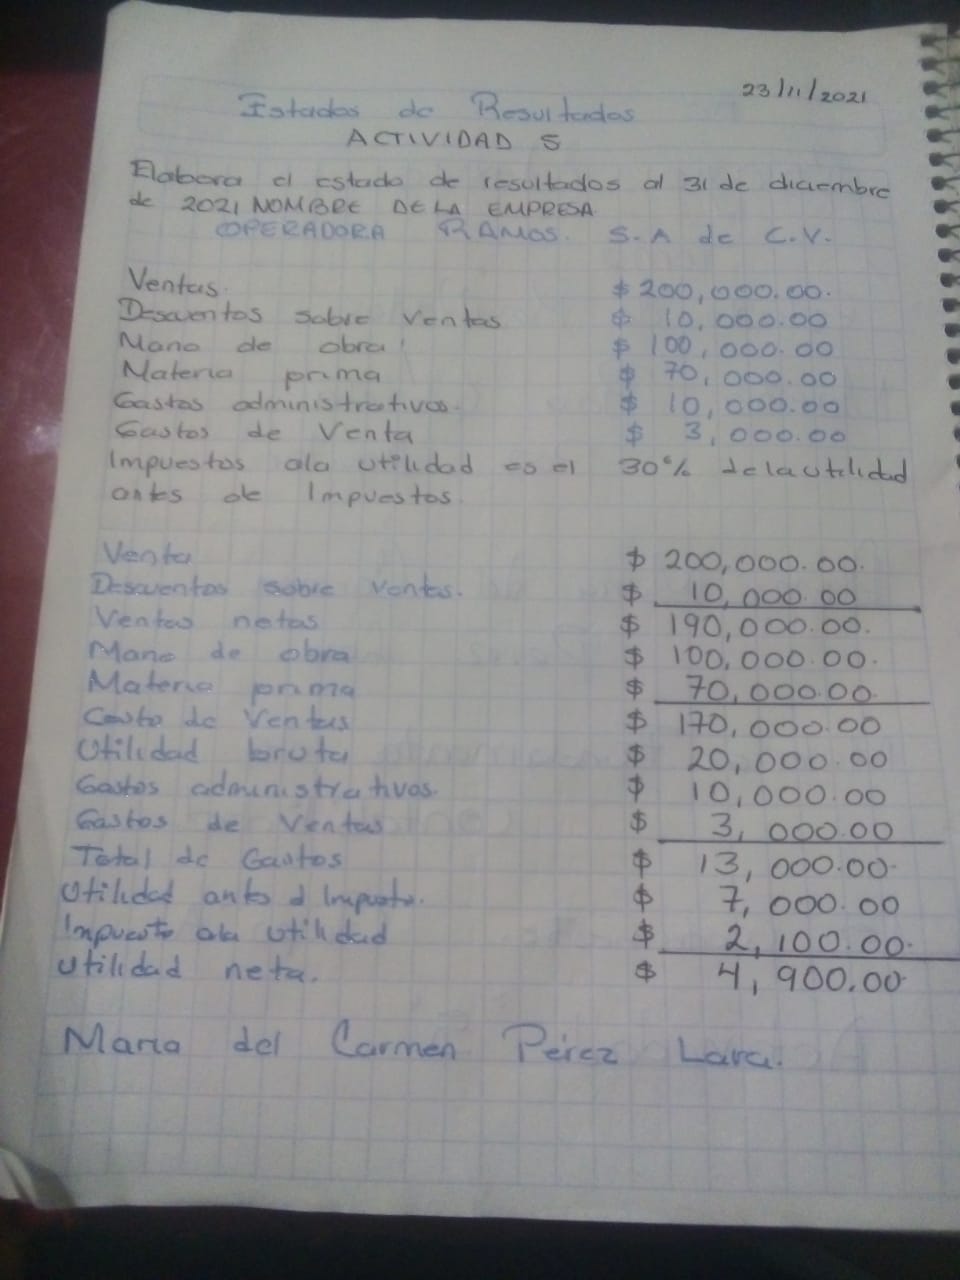 23/11/2021
Estados de Resultados
ACTIVIDAD 5
Elabora el estado de resultados al 31 de diciembre
de 2021 NOMBRE DE LA EMPRESA
OPERADORA RAMOS. S.A de C.V.
Ventas. $ 200,000.00.
Descuentos sobre ventas $ 10,000.00
Mano de obra $ 100,000.00
Materia prima $ 70,000.00
Gastos administrativos. $ 10,000.00
Gastos de Venta $ 3,000.00
Impuestos ala utilidad es el 30% dela utilidad
antes de Impuestos.
Venta $ 200,000.00.
Descuentos sobre ventas. $ 10,000.00
Ventas netas $ 190,000.00.
Mano de obra $ 100,000.00.
Materia prima $ 70,000.00.
Costo de Ventas $ 170,000.00
Utilidad bruta $ 20,000.00
Gastos administrativos. $ 10,000.00
Gastos de Ventas $ 3,000.00
Total de Gastos $ 13,000.00.
Utilidad antes d Impuesto. $ 7,000.00
Impuesto ala utilidad $ 2,100.00.
Utilidad neta. $ 4,900.00
Maria del Carmen Pérez Lara.